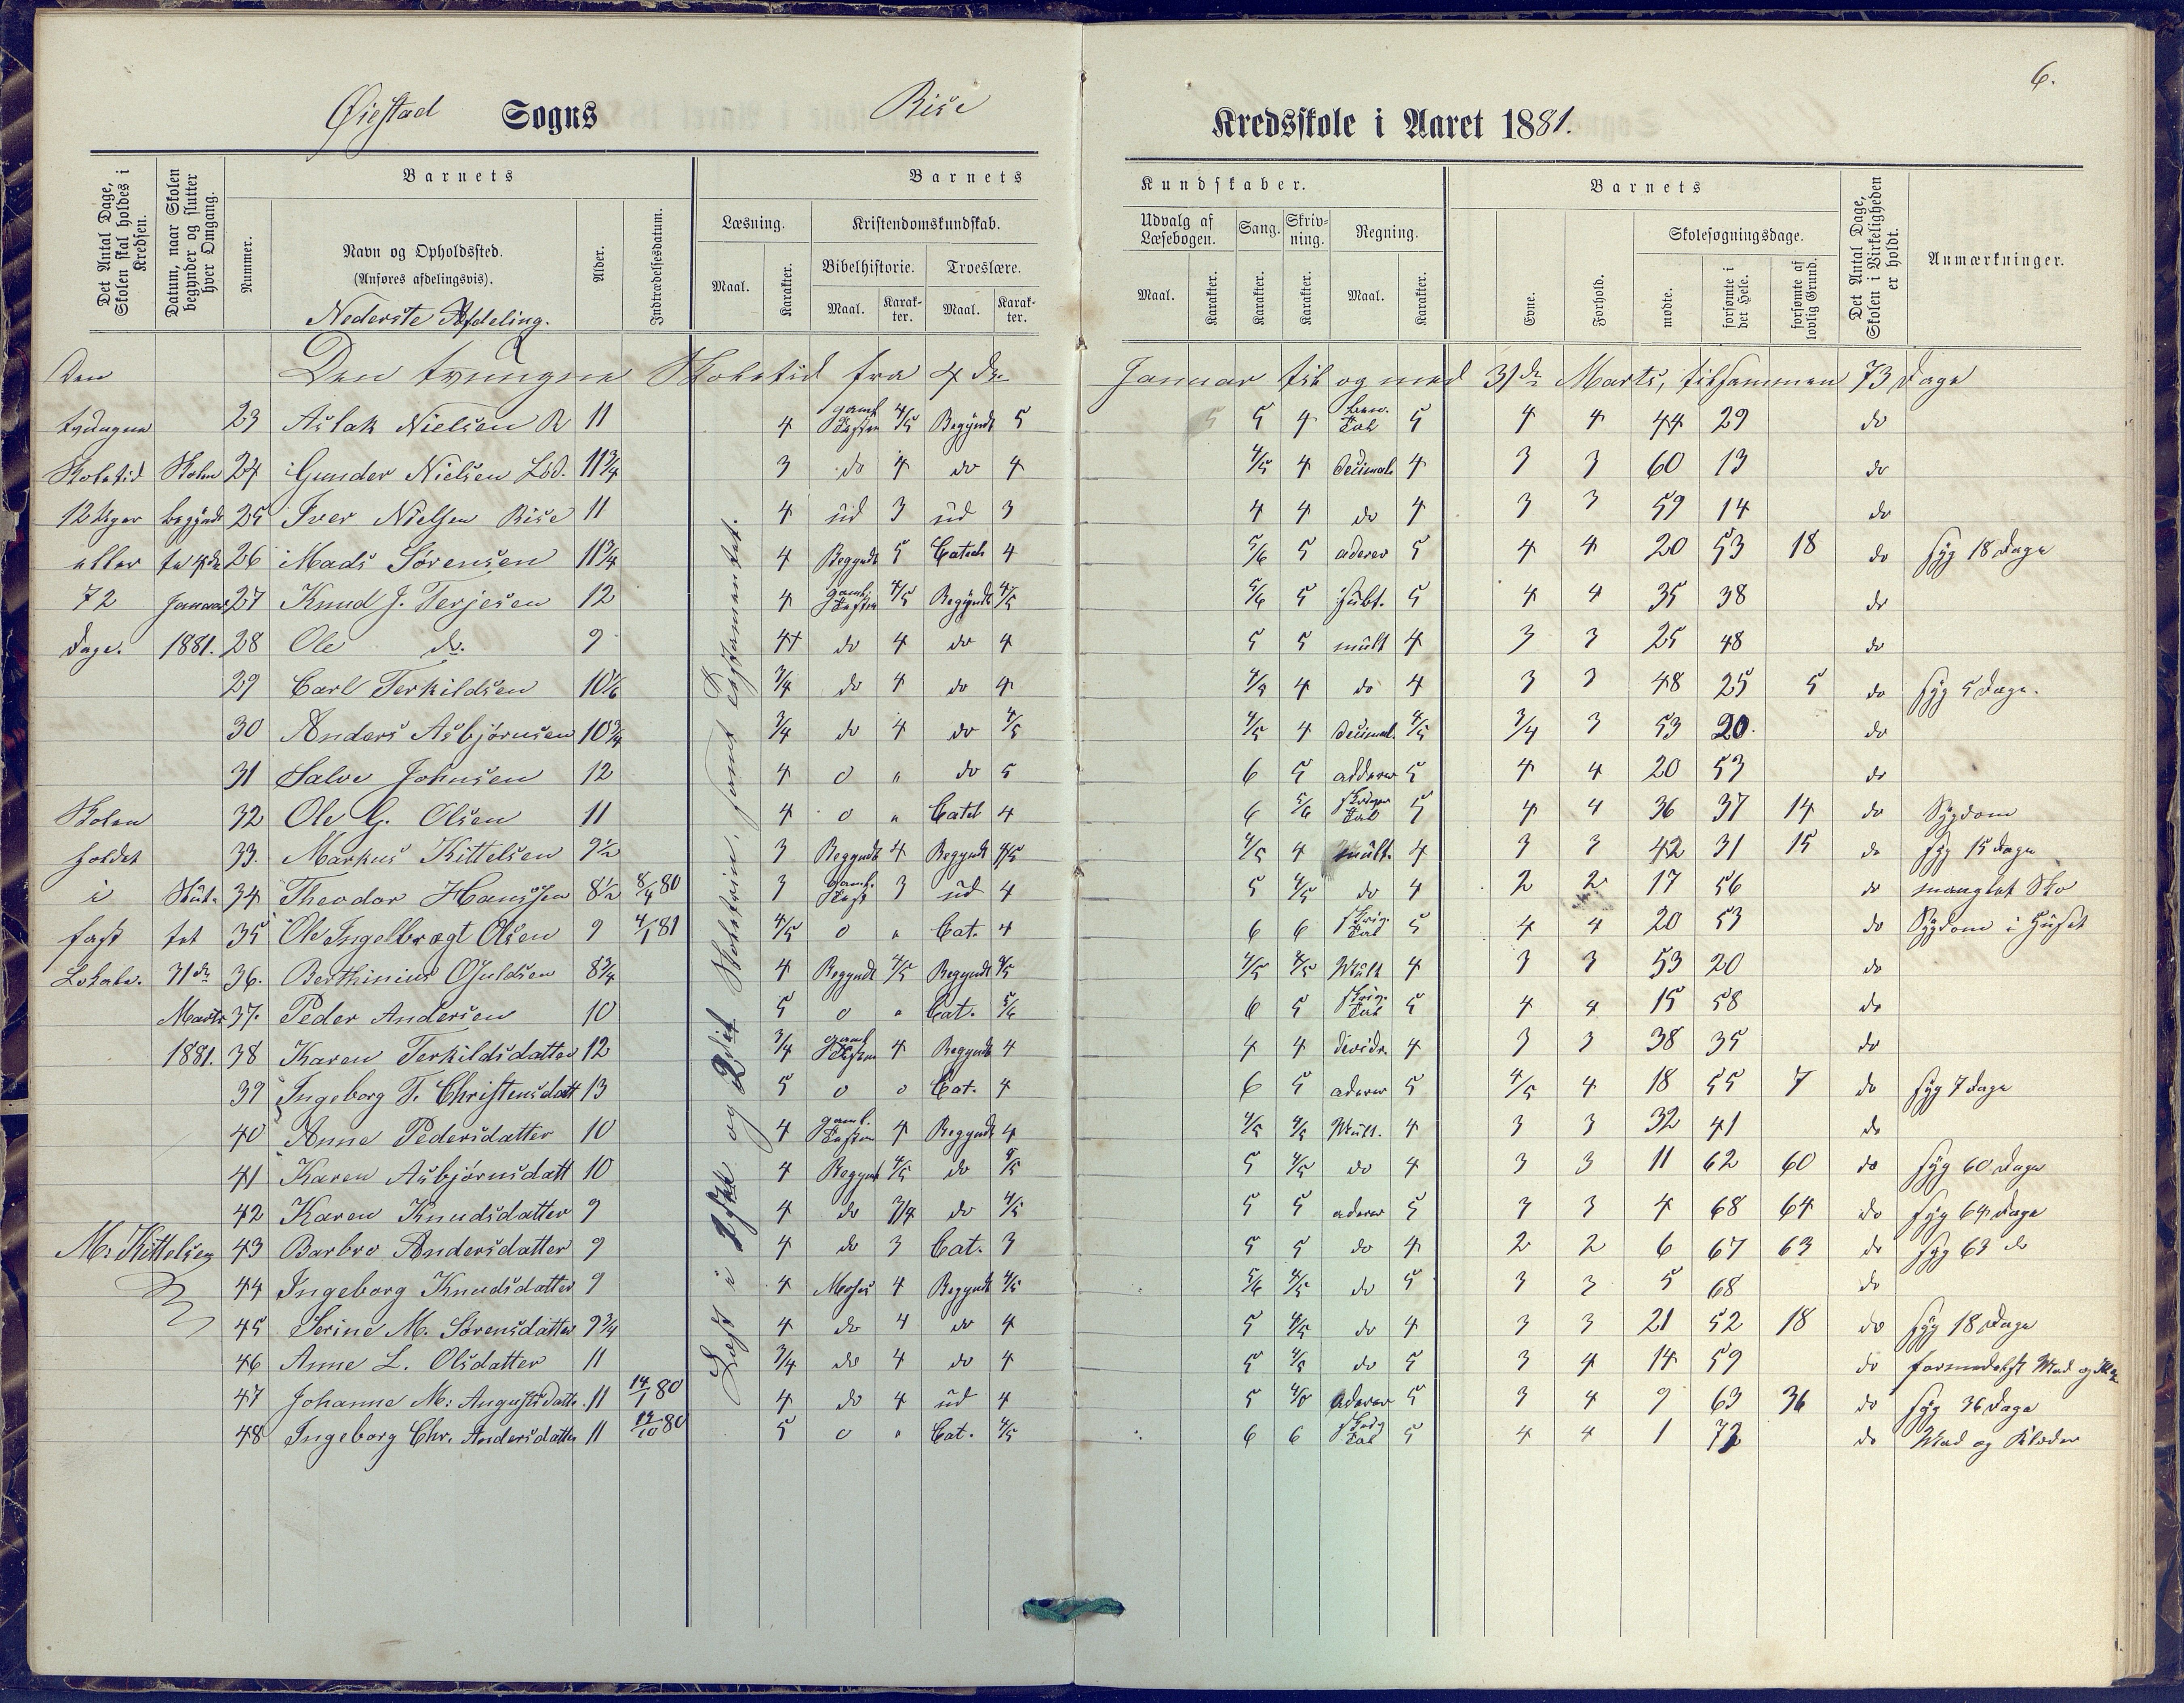 6.
Øiestad Sogns Rise Kredsskole i Aaret 1881.
Det Antal Dage, Skolen skal holdes i Kredsen.
Datum, naar Skolen begynder og slutter hver Omgang.
Barnets
Nummer.
Navn og Opholdssted.
(Anføres afdelingsvis).
Nederste Afdeling.
Alder.
Indtrædelsesdatum.
Barnets Kundskaber.
Læsning.
Maal. Karakter.
Kristendomskundskab.
Bibelhistorie. Troeslære.
Maal. Karakter. Maal. Karakter.
Udvalg af Læsebogen.
Maal. Karakter.
Sang. Karakter.
Skrivning. Karakter.
Regning.
Maal. Karakter.
Barnets
Evne. Forhold.
Skolesøgningsdage.
mødte. forsømte i det Hele. forsømte af lovlig Grund.
Det Antal Dage, Skolen i Virkeligheden er holdt.
Anmærkninger.
Den tvungne Skoletid 12 Uger eller 72 Dage.
Skolen holdes i fast Lokale.
M. Kittelsen
Skolen begyndt den 4de Januar 1881.
Slut- tet 31de Marts 1881.
Læst i 1ste og 2det Skoletrin, samt Testamentet.
Den tvungne Skoletid fra 4de Januar til og med 31de Marts, tilsammen 73 Dage
23 Aslak Nielsen R 11 4 gaml. Testm 4/5 Begyndt 5 5 5 4 ben. Tal 5 4 4 44 29 do
24 Gunder Nielsen Lød. 11 3/4 3 do 4 do 4 4/5 4 Decimal. 4 3 3 60 13 do
25 Iver Nielsen Rise 11 4 ud 3 ud 3 4 4 do 4 3 3 59 14 do
26 Mads Sørensen 11 3/4 4 Begyndt 5 Catech 4 5/6 5 aderer 5 4 4 20 53 18 do syg 18 Dage
27 Knud J. Terjesen 12 4 gaml. Testm 4/5 Begyndt 4/5 5/6 5 subt. 5 4 4 35 38 do
28 Ole do. 9 4+ do 4 do 4 5 5 mult 4 3 3 25 48 do
29 Carl Terkildsen 10 1/6 3/4 do 4 do 4 4/5 4 do 4 3 3 48 25 5 do syg 5 Dage.
30 Anders Asbjørnsen 10 3/4 3/4 do 4 do 4/5 4/5 4 Decimal. 4/5 3/4 3 53 20. do
31 Salve Johnsen 12 4 0 " do 5 6 5 adderer 5 4 4 20 53 do
32 Ole G. Olsen 11 4 0 " Catch 4 6 5/6 skriver Tal 5 4 4 36 37 14 do Sygdom
33. Markus Kittelsen 9 1/2 3 Begyndt 4 Begyndt 4/5 4/5 4 mult. 4 3 3 42 31 15 do syg 15 Dage
34 Theodor Hanssen 8 1/2 8/4 80 3 gaml. Test 3 ud 4 5 4/5 do 4 2 2 17 56 do manglet Sko
35 Ole Ingelbregt Olsen 9 4/1 81 4/5 0 " Cat. 4 6 6 skriv. Tal 5 4 4 20 53 do Sygdom i Huset
36. Berthinius Guldsen 8 3/4 4 Begyndt 4/5 Begyndt 4/5 4/5 4/5 Mult 4 3 3 53 20 do
37. Peder Andersen 10 5 0 " Cat. 5/6 6 5 skriv. Tal 5 4 4 15 58 do
38 Karen Terkildsdatter 12 3/4 gaml Testm 4 Begyndt 4 4 4 divider 4 3 3 38 35 do
39 Ingeborg T. Christensdatt 13 5 0 0 Cat. 4 6 5 aderer 5 4/5 4 18 55 7 do syg 7 Dage
40 Anne Pedersdatter 10 4 gaml. Testm 4 Begyndt 4 4/5 4/5 Mult. 4 3 3 32 41 do
41 Karen Asbjørnsdatt 10 4 Begyndt 4/5 do 4/5 5 4/5 do 4 3 3 11 62 60 do syg 60 Dage
42 Karen Knudsdatter 9 4 do 3/4 do 4/5 5 5 aderer 5 3 3 4 68 64 do syg 64 Dage
43 Barbro Andersdatter 9 4 do 3 Cat. 3 5 5 do 4 2 2 6 67 63 do syg 63 do
44 Ingeborg Knudsdatter 9 4 Moses 4 Begyndt 4/5 5/6 4/5 do 5 3 3 5 68 do
45 Serine M. Sørensdatter 9 3/4 4 do 4 do 4 5 4/5 do 4 3 3 21 52 18 do syg 18 Dage
46 Anne L. Olsdatter 11 3/4 do 4 do 4 5 4/5 do 5 3 4 14 59 do formedelst Mad og
47 Johanne M. Augustsdatt. 11 14/1 80 4 do 4 ud 4 5 4/5 Aderer 5 3 4 9 63 36 do syg 36 Dage
48 Ingeborg Chr. Andersdatter 11 14/10 80 5 0 " Cat. 4/5 6 6 skriv Tal 5 4 4 1 72 do Mad og Klæder